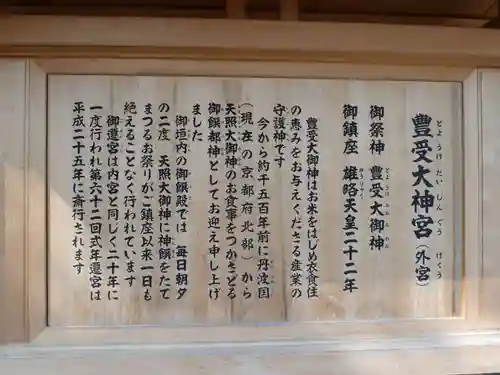 豊受大神宮（外宮）
とようけだいじんぐう げくう
御祭神　豊受大御神
とようけおおみかみ
御鎮座　雄略天皇二十二年
豊受大御神はお米をはじめ衣食住
の恵みをお与えくださる産業の
守護神です
今から約千五百年前に丹波国
（現在の京都府北部）から
天照大御神のお食事をつかさどる
御饌都神としてお迎え申し上げ
ました
御垣内の御饌殿では　毎日朝夕
の二度　天照大御神に神饌をたて
まつるお祭りがご鎮座以来一日も
絶えることなく行われています
御遷宮は内宮と同じく二十年に
一度行われ第六十二回式年遷宮は
平成二十五年に斎行されます